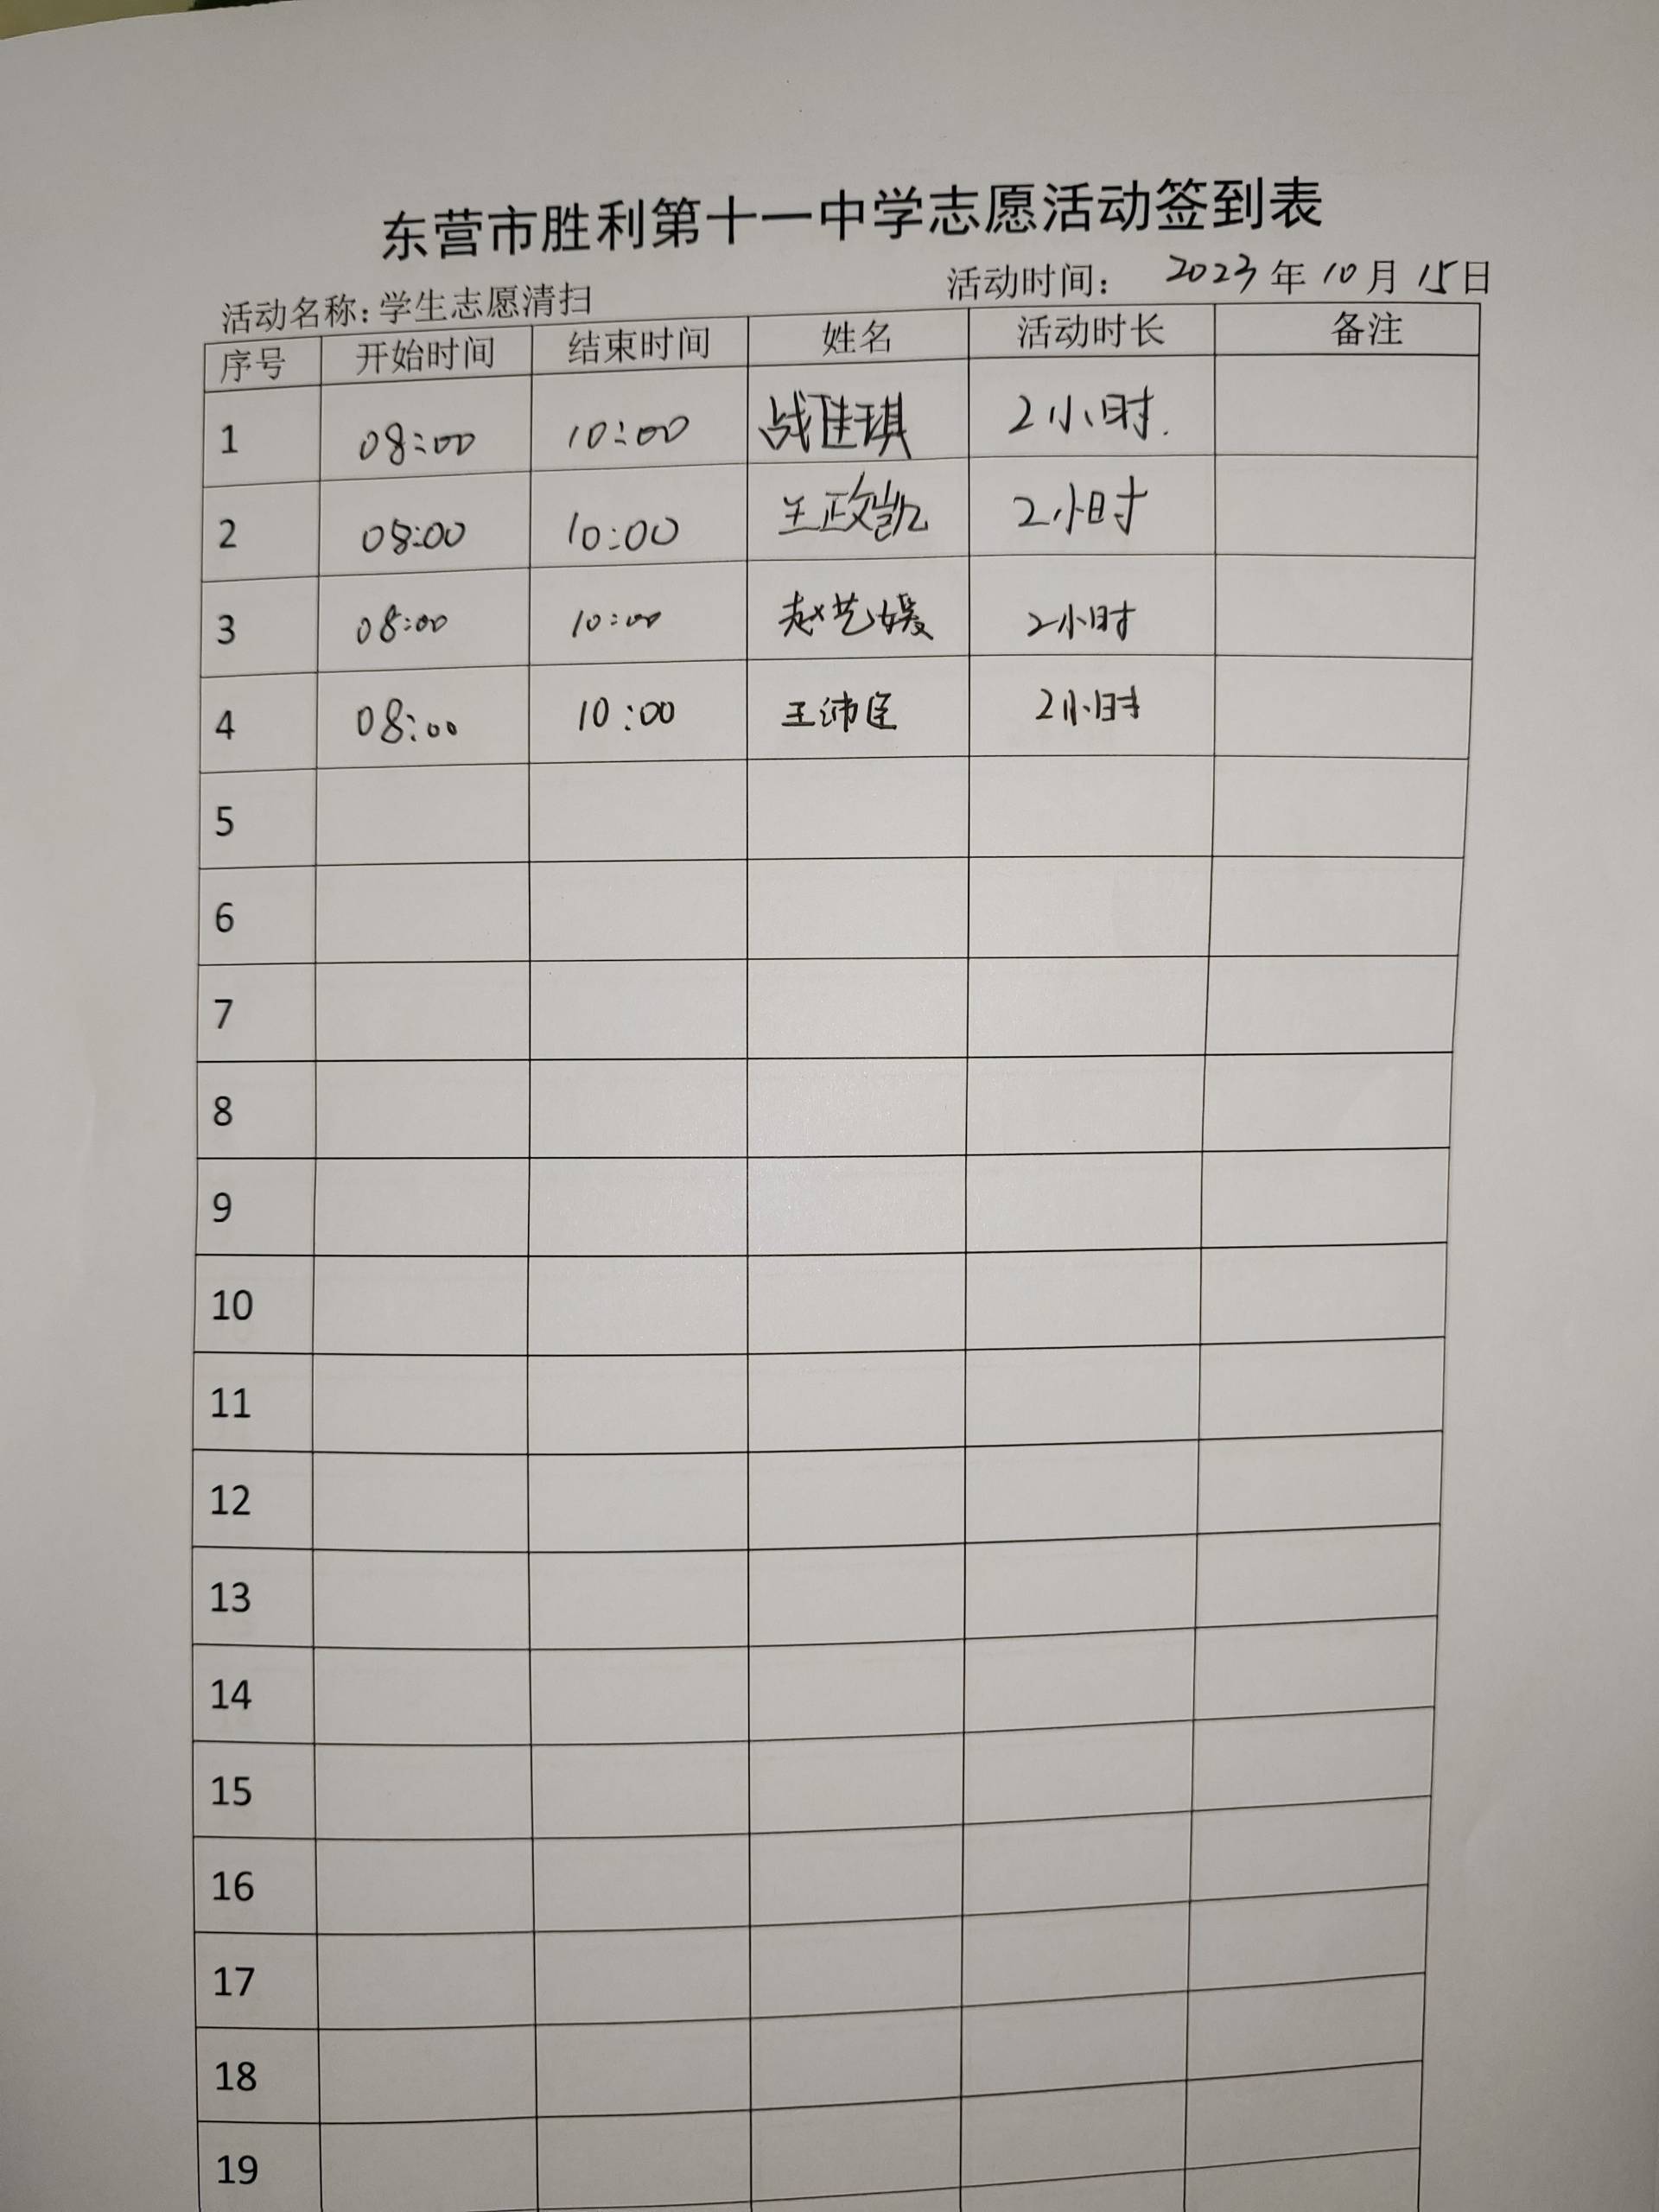 东营市胜利第十一中学志愿活动签到表
活动名称:学生志愿清扫 活动时间: 2023年10月15日
序号 开始时间 结束时间 姓名 活动时长 备注
1 08:00 10:00 战佳琪 2小时.
2 08:00 10:00 王政凯 2小时
3 08:00 10:00 赵艺媛 2小时
4 08:00 10:00 王沛 2小时
5
6
7
8
9
10
11
12
13
14
15
16
17
18
19